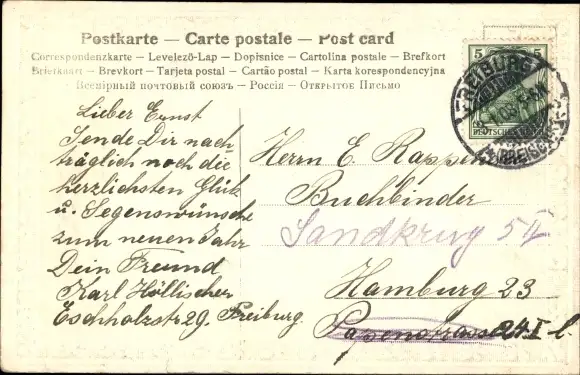 Postkarte — Carte postale — Post card
Correspondenzkarte — Levelező-Lap — Dopisnice — Cartolina postale — Brefkort
Briefkaart — Brevkort — Tarjeta postal — Cartão postal — Karta korespondencyjna
Всемірный почтовый союзъ — Россія — Открытое Письмо
5 5
FREIBURG
DEUTSCHES
Lieber Ernst
Sende Dir nach-
träglich noch die
herzlichsten Glück
u. Segenswünsche
zum neuen Jahr
Dein Freund
Karl Höllischer
Eschholzstr 29. Freiburg
Herrn E. Rappen
Buchbinder
Sandkrug 5
Hamburg 23
Papenstrasse 24 I l.